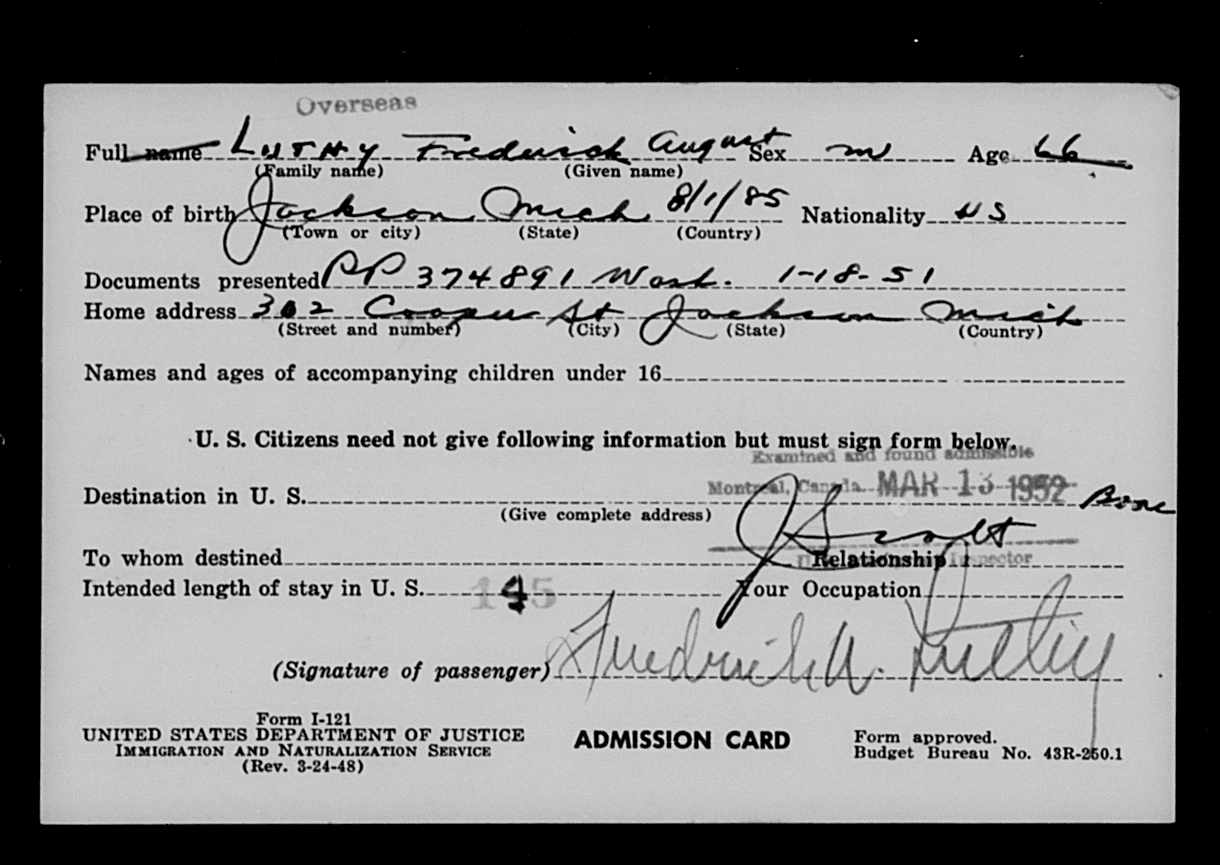 Overseas
Full name LUTHY Frederick August Sex m Age 66
(Family name) (Given name)
Place of birth Jackson Mich 8/1/85 Nationality US
(Town or city) (State) (Country)
Documents presented PP 374891 Wash. 1-18-51
Home address 302 Cooper St Jackson Mich
(Street and number) (City) (State) (Country)
Names and ages of accompanying children under 16
U. S. Citizens need not give following information but must sign form below.
Examined and found admissible
Destination in U. S. Montreal, Canada MAR 13 1952
(Give complete address)
J Scott
To whom destined Relationship Inspector
Intended length of stay in U. S. 145 Your Occupation
(Signature of passenger) Frederick A. Luthy
Form I-121
UNITED STATES DEPARTMENT OF JUSTICE
IMMIGRATION AND NATURALIZATION SERVICE
(Rev. 3-24-48)
ADMISSION CARD
Form approved.
Budget Bureau No. 43R-250.1